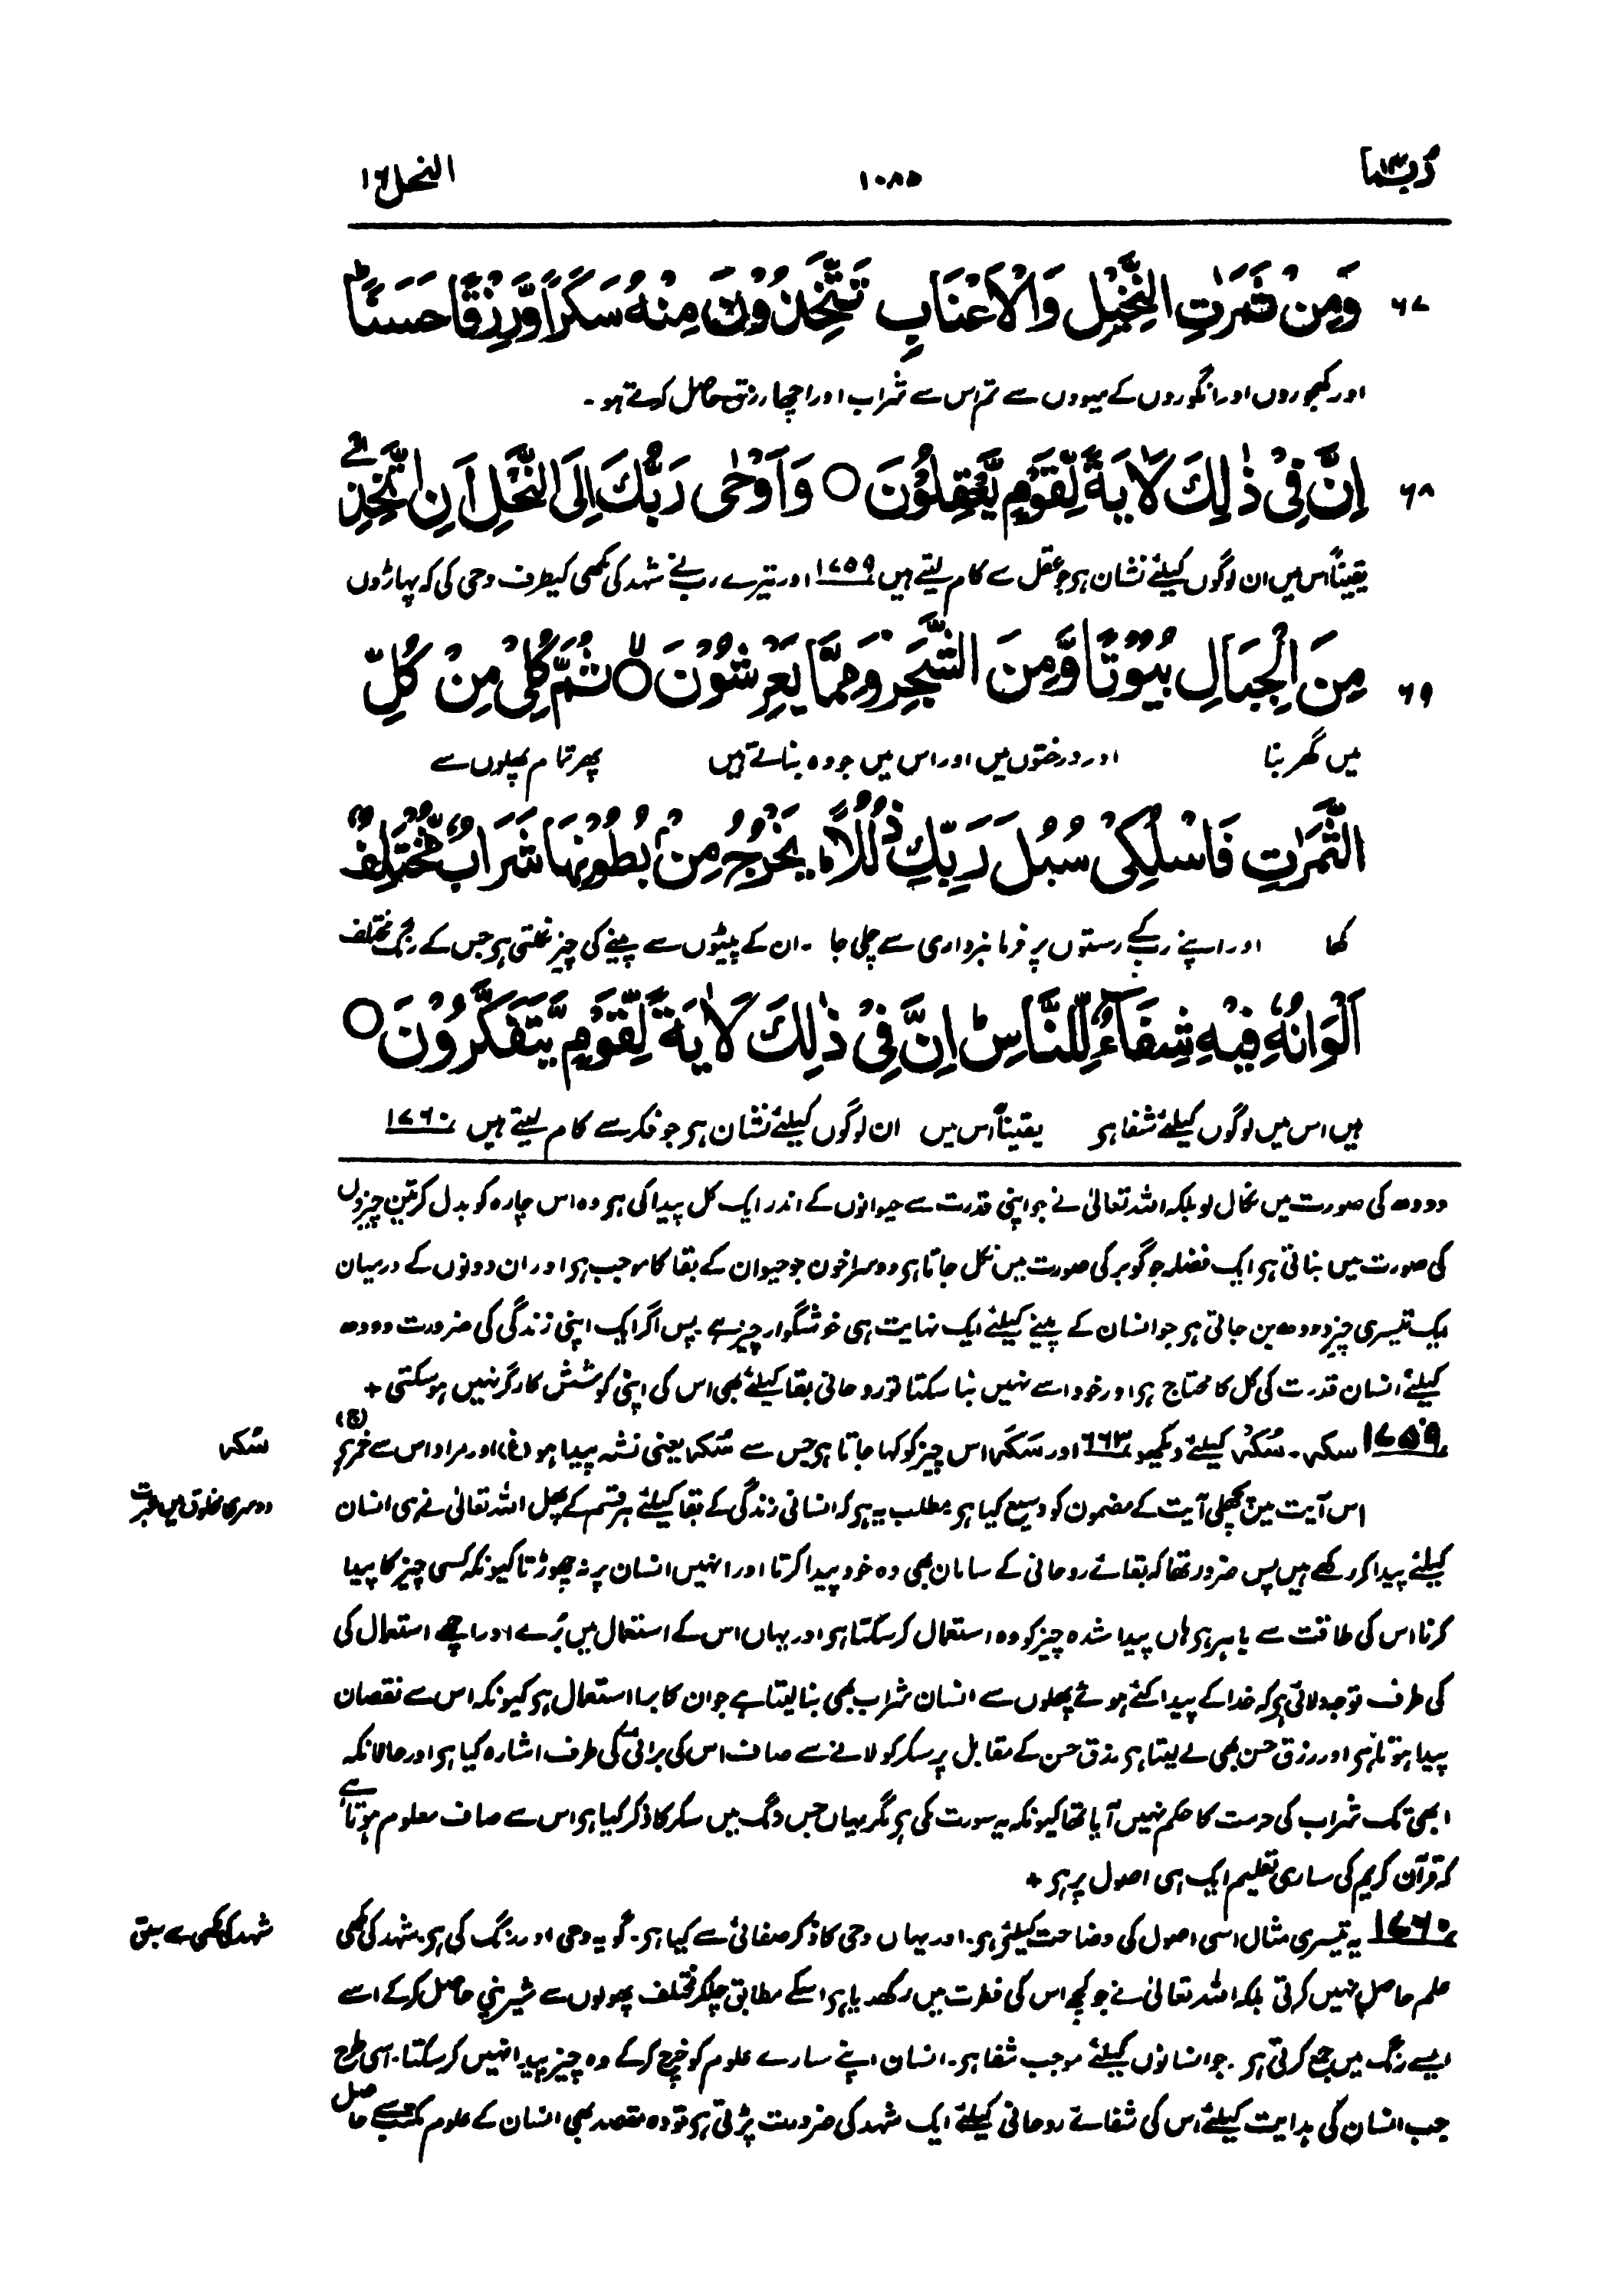 ربما ١٤
١٠٨٥
النحل ١٦
٦٧ وَمِنْ ثَمَرٰتِ النَّخِيْلِ وَالْاَعْنَابِ تَتَّخِذُوْنَ مِنْهُ سَكَرًا وَّرِزْقًا حَسَنًاؕ
اور کھجوروں اور انگوروں کے میووں سے تم اس سے شراب اور اچھا رزق حاصل کرتے ہو۔
٦٨ اِنَّ فِيْ ذٰلِكَ لَاٰيَةً لِّقَوْمٍ يَّعْقِلُوْنَ○ وَاَوْحٰى رَبُّكَ اِلَى النَّحْلِ اَنِ اتَّخِذِيْ
یقیناً اس میں ان لوگوں کیلئے نشان ہو جو عقل سے کام لیتے ہیں ١٧٥٩ اور تیرے رب نے شہد کی مکھی کیطرف وحی کی کہ پہاڑوں
٦٩ مِنَ الْجِبَالِ بُيُوْتًا وَّمِنَ الشَّجَرِ وَمِمَّا يَعْرِشُوْنَ○ۙ ثُمَّ كُلِيْ مِنْ كُلِّ
میں گھر بنا اور درختوں میں اور اس میں جو وہ بناتے ہیں پھر تمام پھلوں سے
الثَّمَرٰتِ فَاسْلُكِيْ سُبُلَ رَبِّكِ ذُلُلًاؕ يَخْرُجُ مِنْۢ بُطُوْنِهَا شَرَابٌ مُّخْتَلِفٌ
کھا اور اپنے رب کے رستوں پر فرمانبرداری سے چلی جا۔ ان کے پیٹوں سے پینے کی چیز نکلتی ہو جس کے رنگ مختلف
اَلْوَانُهٗ فِيْهِ شِفَآءٌ لِّلنَّاسِؕ اِنَّ فِيْ ذٰلِكَ لَاٰيَةً لِّقَوْمٍ يَّتَفَكَّرُوْنَ○
ہیں اس میں لوگوں کیلئے شفا ہو یقیناً اس میں ان لوگوں کیلئے نشان ہو جو فکر سے کام لیتے ہیں ١٧٦٠
دودھ کی صورت میں نکال لو بلکہ اللہ تعالیٰ نے جو اپنی قدرت سے حیوانوں کے اندر ایک کل پیدا کی ہو وہ اس چارہ کو بدل کر تین چیزوں
کی صورت میں بناتی ہو ایک فضلہ جو گوبر کی صورت میں نکل جاتا ہو دوسرا خون جو حیوان کے بقا کا موجب ہو اور ان دونوں کے درمیان
ایک تیسری چیز دودھ بن جاتی ہو جو انسان کے پینے کیلئے ایک نہایت ہی خوشگوار چیز ہے پس اگر ایک اپنی زندگی کی ضرورت دودھ
کیلئے انسان قدرت کی کل کا محتاج ہو اور خود اسے نہیں بنا سکتا تو روحانی بقا کیلئے بھی اس کی اپنی کوشش کارگر نہیں ہو سکتی +
١٧٥٩ سکر۔ سُکْر کیلئے دیکھو ٦٦٣ اور سَکَر اس چیز کو کہا جاتا ہو جس سے سُکر یعنی نشہ پیدا ہو (غ) اور مراد اس سے خمر ہو (ج)
سَکَر
اس آیت میں پچھلی آیت کے مضمون کو وسیع کیا ہو مطلب یہ ہو کہ انسانی زندگی کے بقا کیلئے ہر قسم کے پھل اللہ تعالیٰ نے ہی انسان
دوسری مخلوق میں عبرت
کیلئے پیدا کر رکھے ہیں پس ضرور تھا کہ بقائے روحانی کے سامان بھی وہ خود پیدا کرتا اور انہیں انسان پر نہ چھوڑتا کیونکہ کسی چیز کا پیدا
کرنا اس کی طاقت سے باہر ہو ہاں پیدا شدہ چیز کو وہ استعمال کر سکتا ہو اور یہاں اس کے استعمال میں بُرے اور اچھے استعمال کی
کی طرف توجہ دلائی ہو کہ خدا کے پیدا کئے ہوئے پھلوں سے انسان شراب بھی بنا لیتا ہے جو ان کا برا استعمال ہو کیونکہ اس سے نقصان
پیدا ہوتا ہو اور رزق حسن بھی لے لیتا ہو رزق حسن کے مقابل پر سکر کو لانے سے صاف اس کی برائی کی طرف اشارہ کیا ہو اور حالانکہ
ابھی تک شراب کی حرمت کا حکم نہیں آیا تھا کیونکہ یہ سورت مکی ہو مگر یہاں جس رنگ میں سکر کا ذکر کیا ہو اس سے صاف معلوم ہوتا ہے
کہ قرآن کریم کی ساری تعلیم ایک ہی اصول پر ہو +
١٧٦٠ یہ تیسری مثال اسی اصول کی وضاحت کیلئے ہو۔ اور یہاں وحی کا ذکر صفائی سے کیا ہو۔ گو یہ وحی اور رنگ کی ہو۔ شہد کی مکھی
شہد کی مکھی سے سبق
علم حاصل نہیں کرتی بلکہ اللہ تعالیٰ نے جو کچھ اس کی فطرت میں رکھدیا ہو اسکے مطابق چلکر مختلف پھولوں سے شیرینی حاصل کر کے اسے
ایسے رنگ میں جمع کرتی ہو۔ جو انسانوں کیلئے موجب شفا ہو۔ انسان اپنے سارے علوم کو خرچ کر کے وہ چیز پیدا نہیں کر سکتا۔ اسی طرح
جب انسان کی ہدایت کیلئے اس کی شفائے روحانی کیلئے ایک شہد کی ضرورت پڑتی ہو تو وہ مقصد بھی انسان کے علوم مکتسبہ سے حاصل